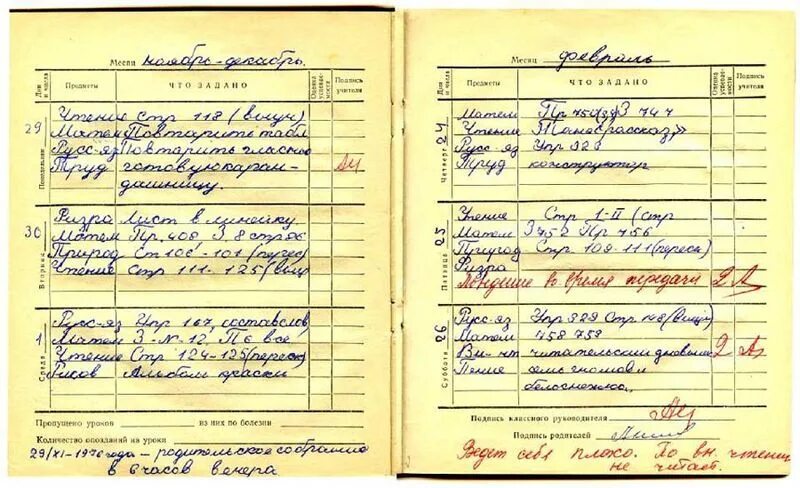 Месяц ноябрь-декабрь.
Дни и числа Предметы ЧТО ЗАДАНО Оценка успеваемости Подпись учителя
29 Понедельник
Чтение Стр 118 (выуч)
Матем Повторить табл
Русс-яз Повторить гласной
Труд готовую каран-
дашницу.
30 Вторник
Физра Лист в линейку
Матем Пр. 408, З, 8 стр 96
Природ Ст 100-101 (перес)
Чтение Стр 111-125 (выуч)
1 Среда
Русс-яз Упр 167, состав слов
Матем З-№-12. П 6 все
Чтение Стр 124-125 (переск)
Рисов Альбом краски
Пропущено уроков из них по болезни
Количество опозданий на уроки
29/XI-1976 года – родительское собрание
в 6 часов вечера
Месяц февраль
Дни и числа Предметы ЧТО ЗАДАНО Оценка успеваемости Подпись учителя
24 Четверг
Матем Пр 750 З 747
Чтение (рассказ)
Русс-яз Упр 323
Труд конструктор
25 Пятница
Чтение Стр 1-II (стр
Матем З 752 Пр 756
Природ Стр 109-111 (переск)
Физра
время передачи 2
26 Суббота
Русс-яз Упр 329 Стр 148 (выуч)
Матем 758 759
Вн-чт читательский дневник 2
Пение семь гномов и
белоснежка.
Подпись классного руководителя
Подпись родителей
Ведет себя плохо. По вн. чтению
не читает.